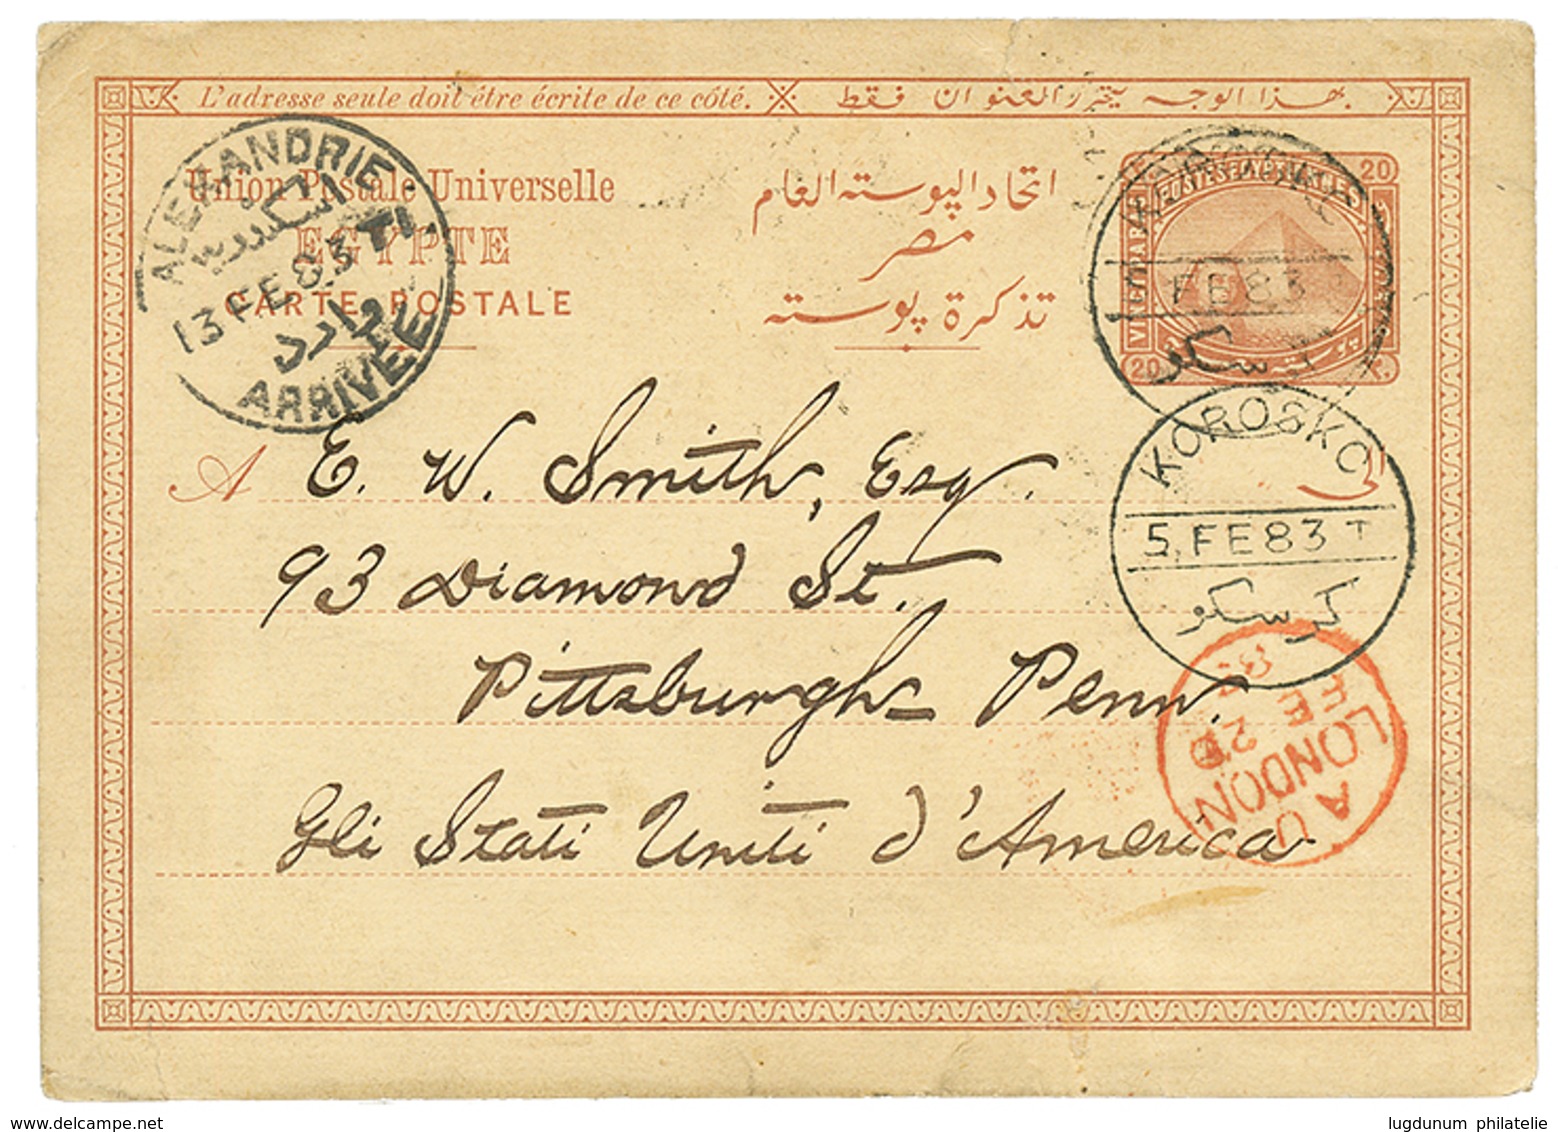 L'adresse seule doit être écrite de ce côté. بهذا الوجه يتحرر العنوان فقط
Union Postale Universelle اتحاد البوسته العام
EGYPTE مصر
CARTE POSTALE تذكرة بوسته
ALEXANDRIE
13 FE 83 TI
وارد
ARRIVÉE
20
20
FE 83
KOROSKO
5 FE 83 T
كرسكو
A E. W. Smith, Esq.
93 Diamond St.
Pittsburgh Penn.
Gli Stati Uniti d'America
LONDON
A U
FE 20
lugdunum philatelie